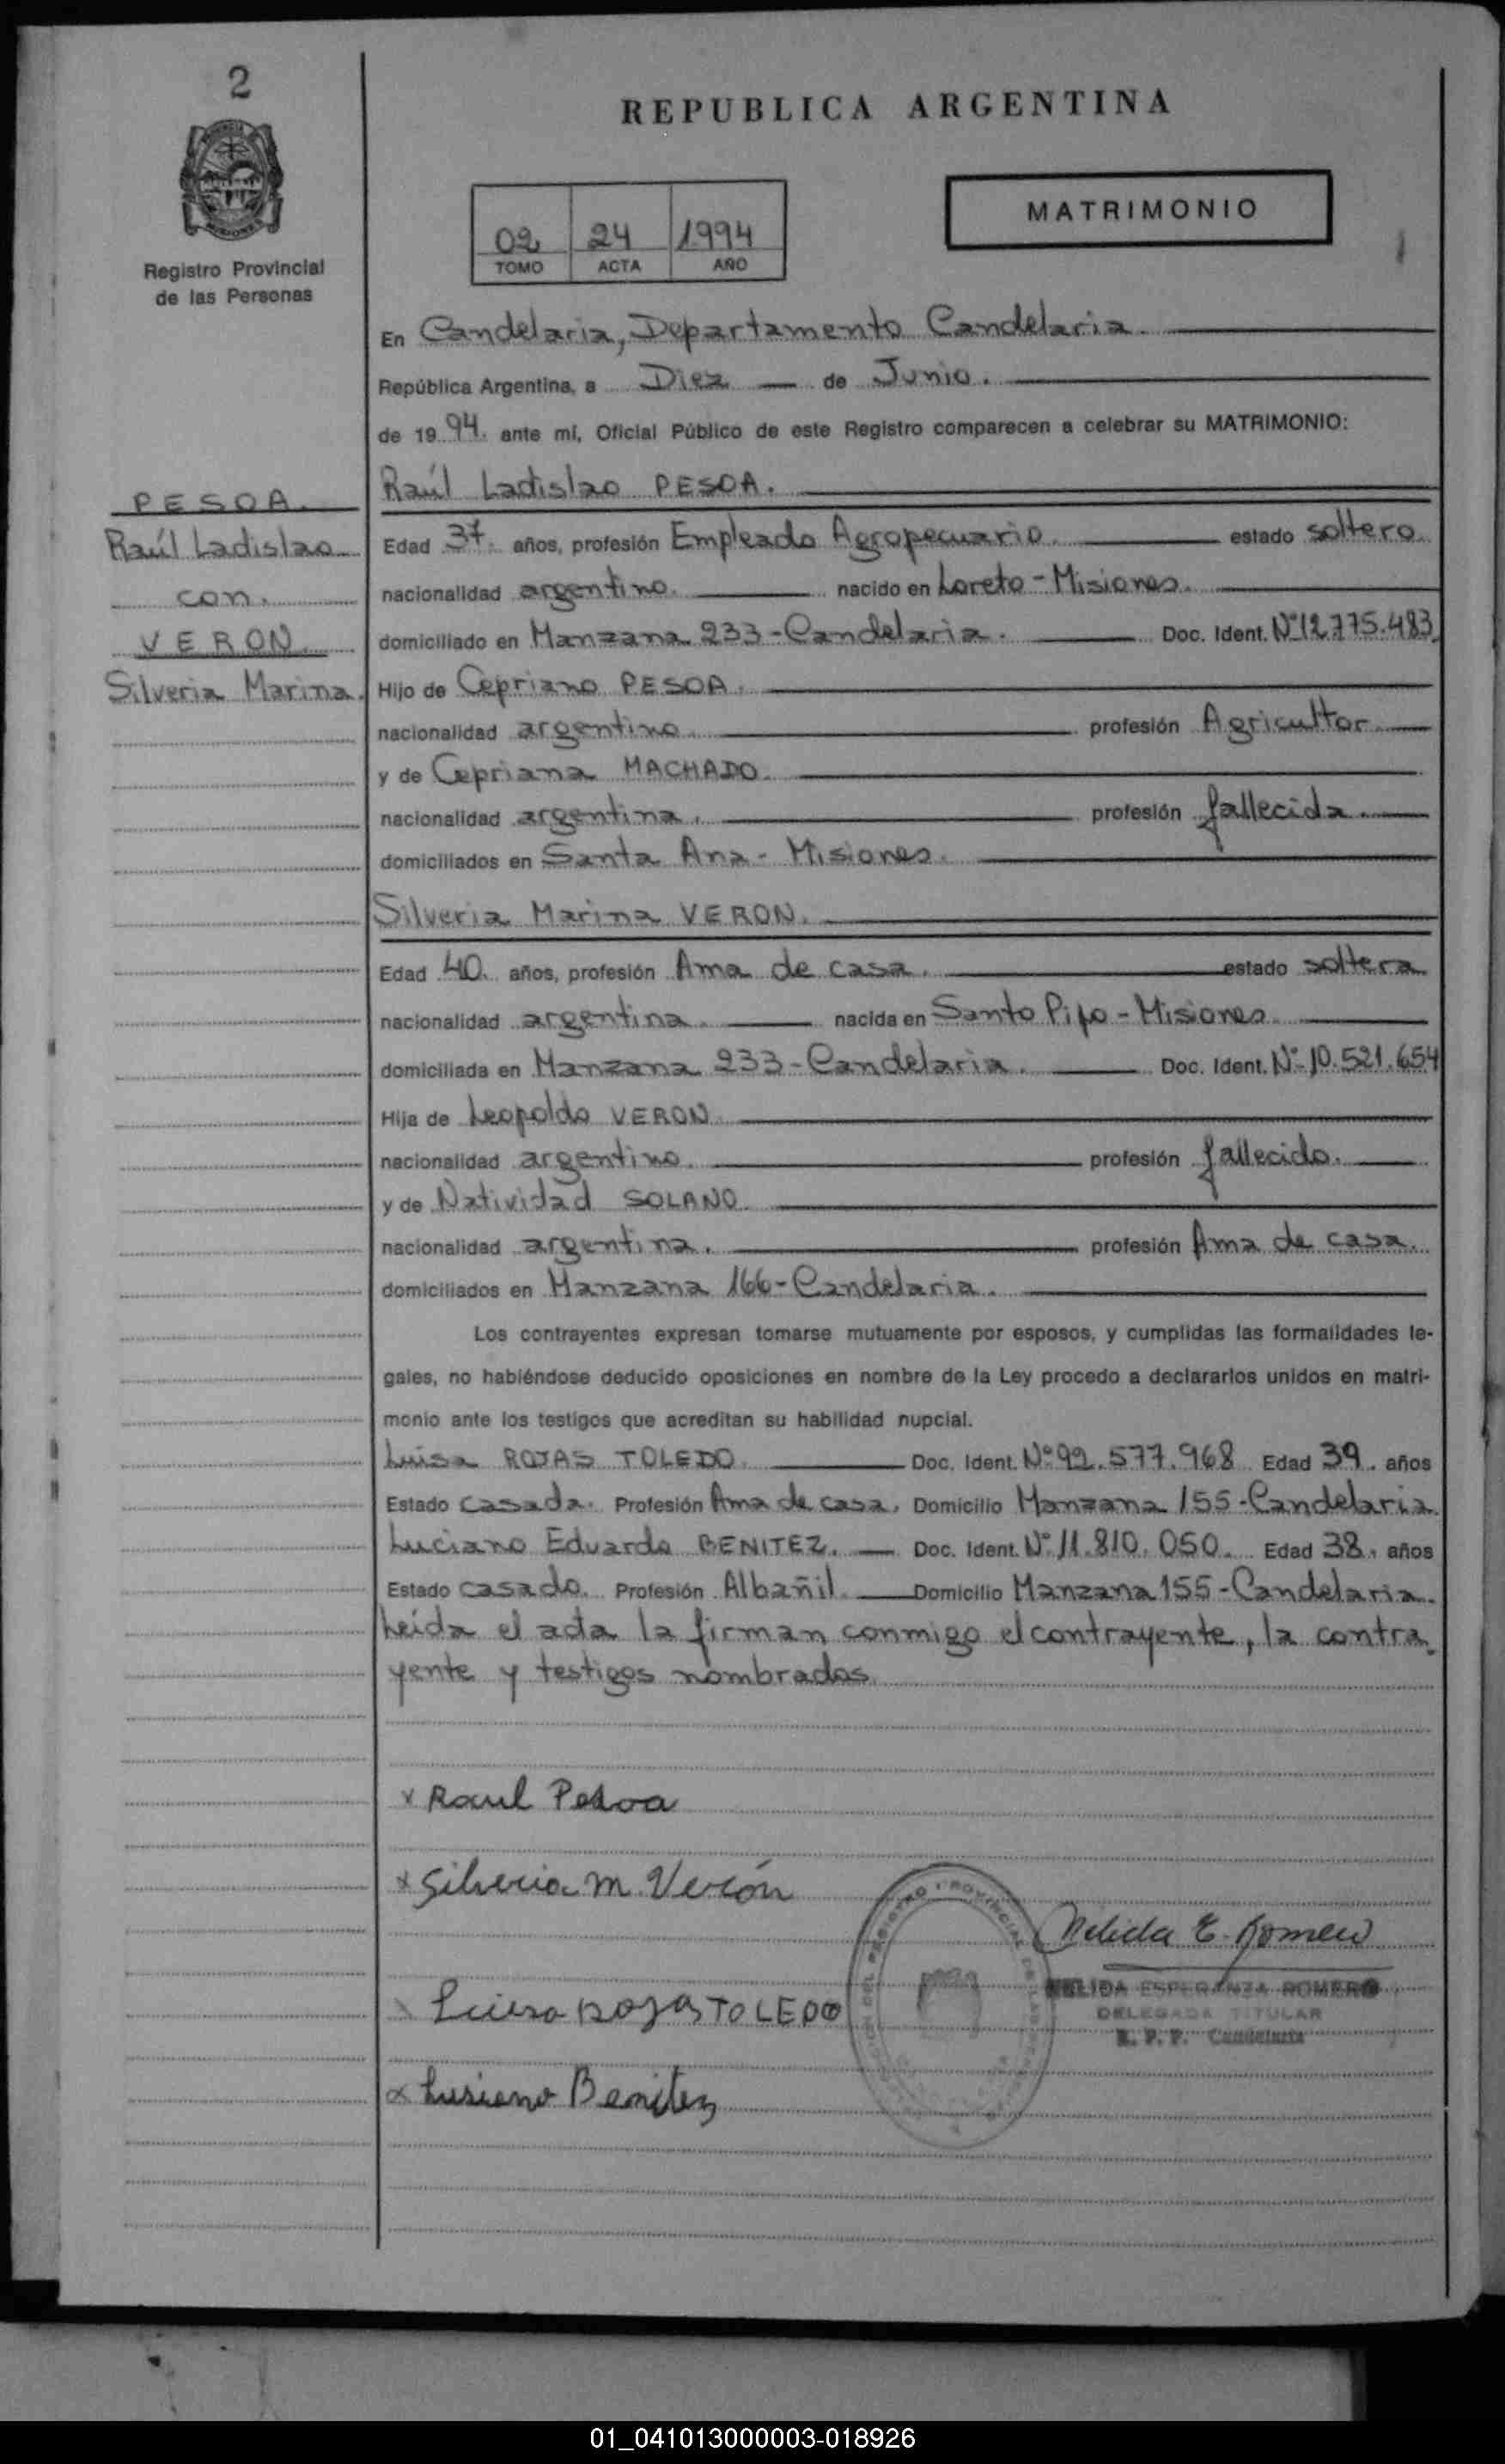 2
REPUBLICA ARGENTINA
MATRIMONIO
02 24 1994
TOMO ACTA AÑO
Registro Provincial
de las Personas
En Candelaria, Departamento Candelaria.
República Argentina, a Diez de Junio.
de 19 94. ante mí, Oficial Público de este Registro comparecen a celebrar su MATRIMONIO:
PESOA.
Raúl Ladislao
con.
VERON.
Silveria Marina.
Raúl Ladislao PESOA.
Edad 37. años, profesión Empleado Agropecuario. estado soltero.
nacionalidad argentino. nacido en Loreto - Misiones.
domiciliado en Manzana 233 - Candelaria. Doc. Ident. Nº 12.775.483.
Hijo de Cepriano PESOA.
nacionalidad argentino. profesión Agricultor.
y de Cepriana MACHADO.
nacionalidad argentina. profesión fallecida.
domiciliados en Santa Ana - Misiones.
Silveria Marina VERON.
Edad 40. años, profesión Ama de casa. estado soltera
nacionalidad argentina. nacida en Santo Pipo - Misiones.
domiciliada en Manzana 233 - Candelaria. Doc. Ident. Nº 10.521.654
Hija de Leopoldo VERON.
nacionalidad argentino. profesión fallecido.
y de Natividad SOLANO.
nacionalidad argentina. profesión Ama de casa.
domiciliados en Manzana 166 - Candelaria.
Los contrayentes expresan tomarse mutuamente por esposos, y cumplidas las formalidades le-
gales, no habiéndose deducido oposiciones en nombre de la Ley procedo a declararlos unidos en matri-
monio ante los testigos que acreditan su habilidad nupcial.
Luisa ROJAS TOLEDO. Doc. Ident. Nº 92.577.968 Edad 39. años
Estado casada. Profesión Ama de casa. Domicilio Manzana 155 - Candelaria.
Luciano Eduardo BENITEZ. Doc. Ident. Nº 11.810.050. Edad 38. años
Estado casado. Profesión Albañil. Domicilio Manzana 155 - Candelaria.
Leída el acta la firman conmigo el contrayente, la contra-
yente y testigos nombrados.
x Raul Pesoa
x Silveria M. Verón
Nelida E. Romero
NELIDA ESPERANZA ROMERO
DELEGADA TITULAR
R. P. P. Candelaria
x Luisa Rojas TOLEDO
x Lusiano Benitez
01_041013000003-018926